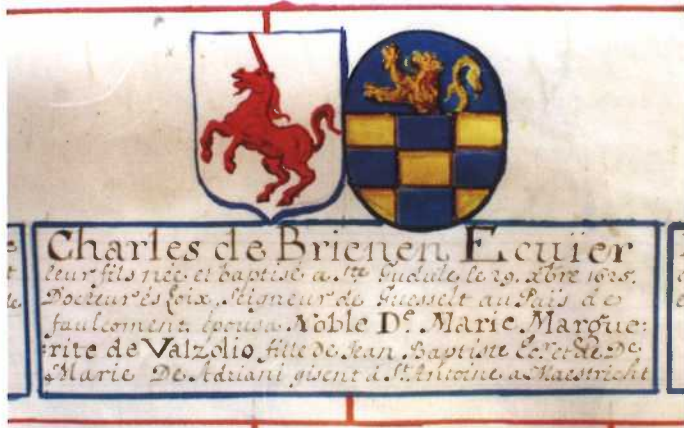 Charles de Brienen Ecuïer
leur fils neé et baptisé a Ste Gudule le 29. xbre 1625.
Docteur és Loix, Seigneur de Guesselt au Païs de
faulcoment. épousa Noble De. Marie Margue:
:rite de Valzolio fille de Jean Baptiste Ecr. et de De
Marie De Adriani gisent à St. Antoine a Maestricht